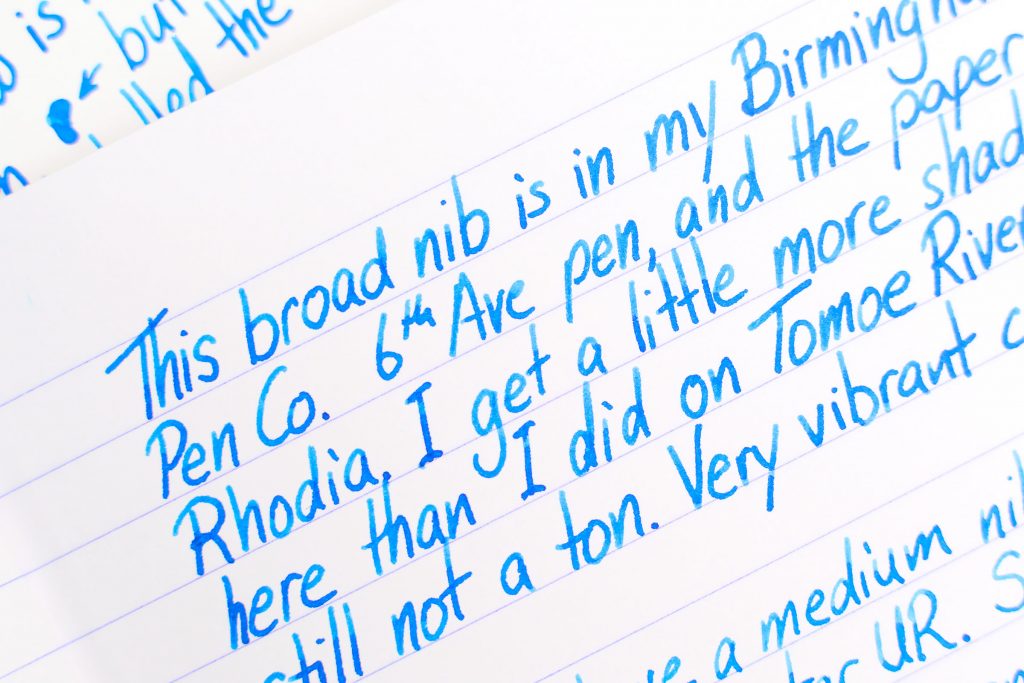 is
but
the
This broad nib is in my Birmingha
Pen Co. 6th Ave pen, and the paper
Rhodia. I get a little more shad
here than I did on Tomoe River
still not a ton. Very vibrant c
a medium ni
UR. S